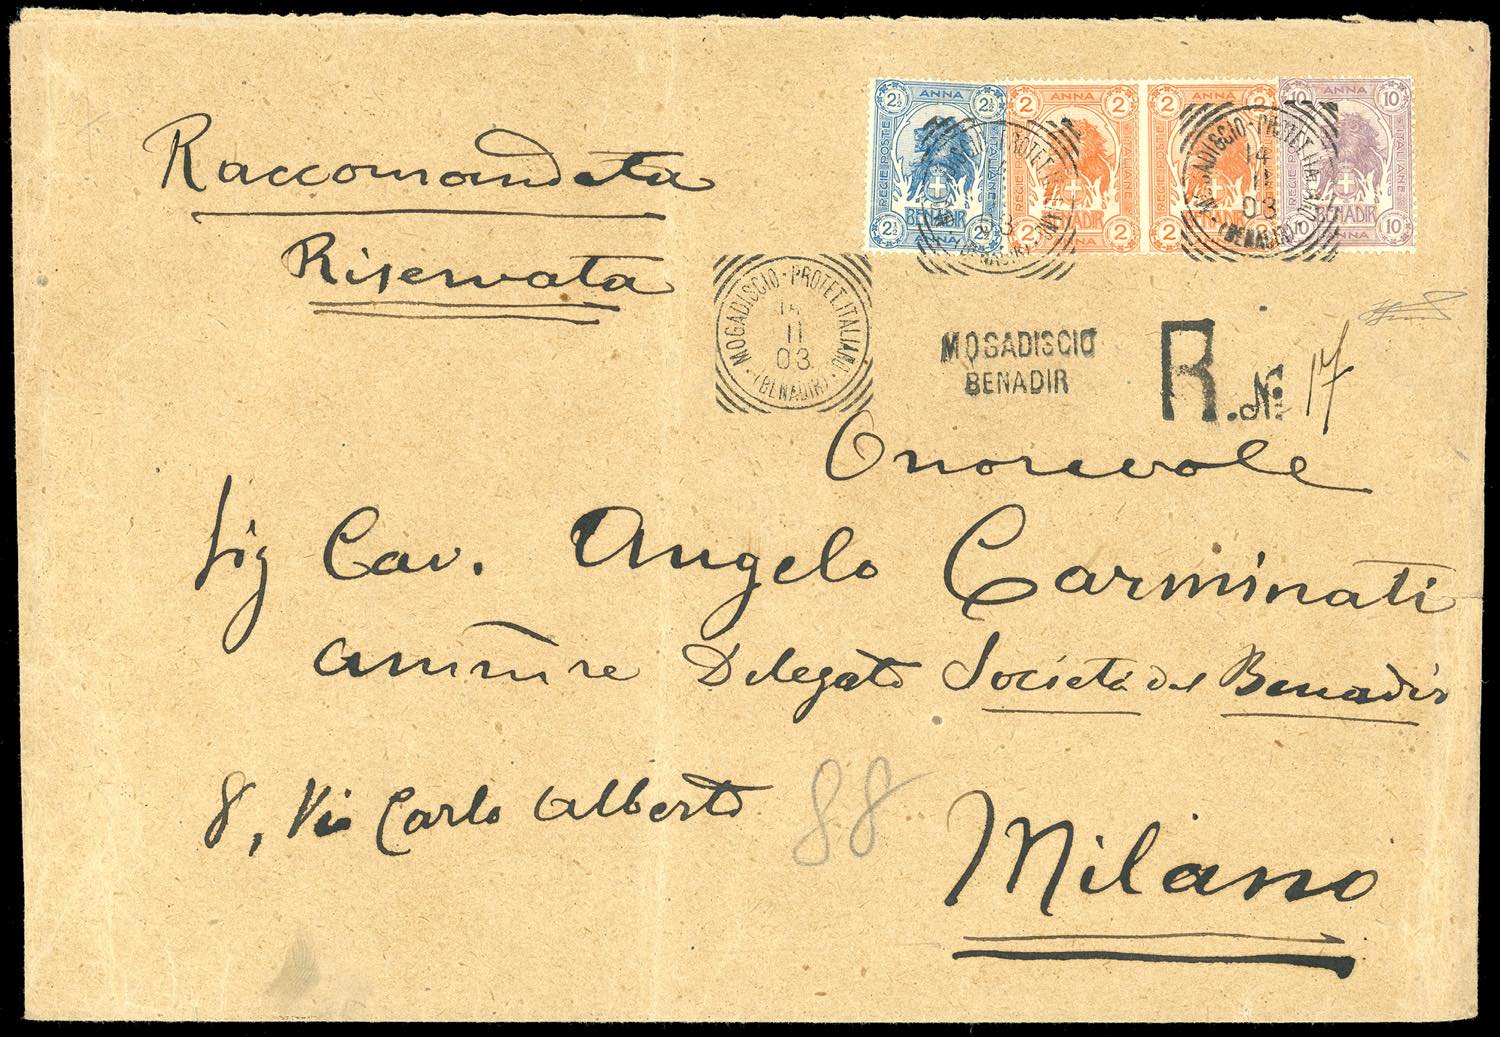 Raccomandata
Riservata
2½ ANNA 2½
REGIE POSTE ITALIANE
BENADIR
2½ ANNA 2½
2 ANNA 2
BENADIR
2 ANNA 2
BENADIR
10 ANNA 10
REGIE POSTE ITALIANE
BENADIR
10 ANNA 10
MOGADISCIO - PROTET. ITALIANO
14
11
03
(BENADIR)
MOGADISCIO - PROTET. ITALIANO
11
03
(BENADIR)
MOGADISCIO
BENADIR
R. No 17
Onorevole
Sig Cav. Angelo Carminati
Delegato Società del Benadir
8, Via Carlo Alberto
88
Milano